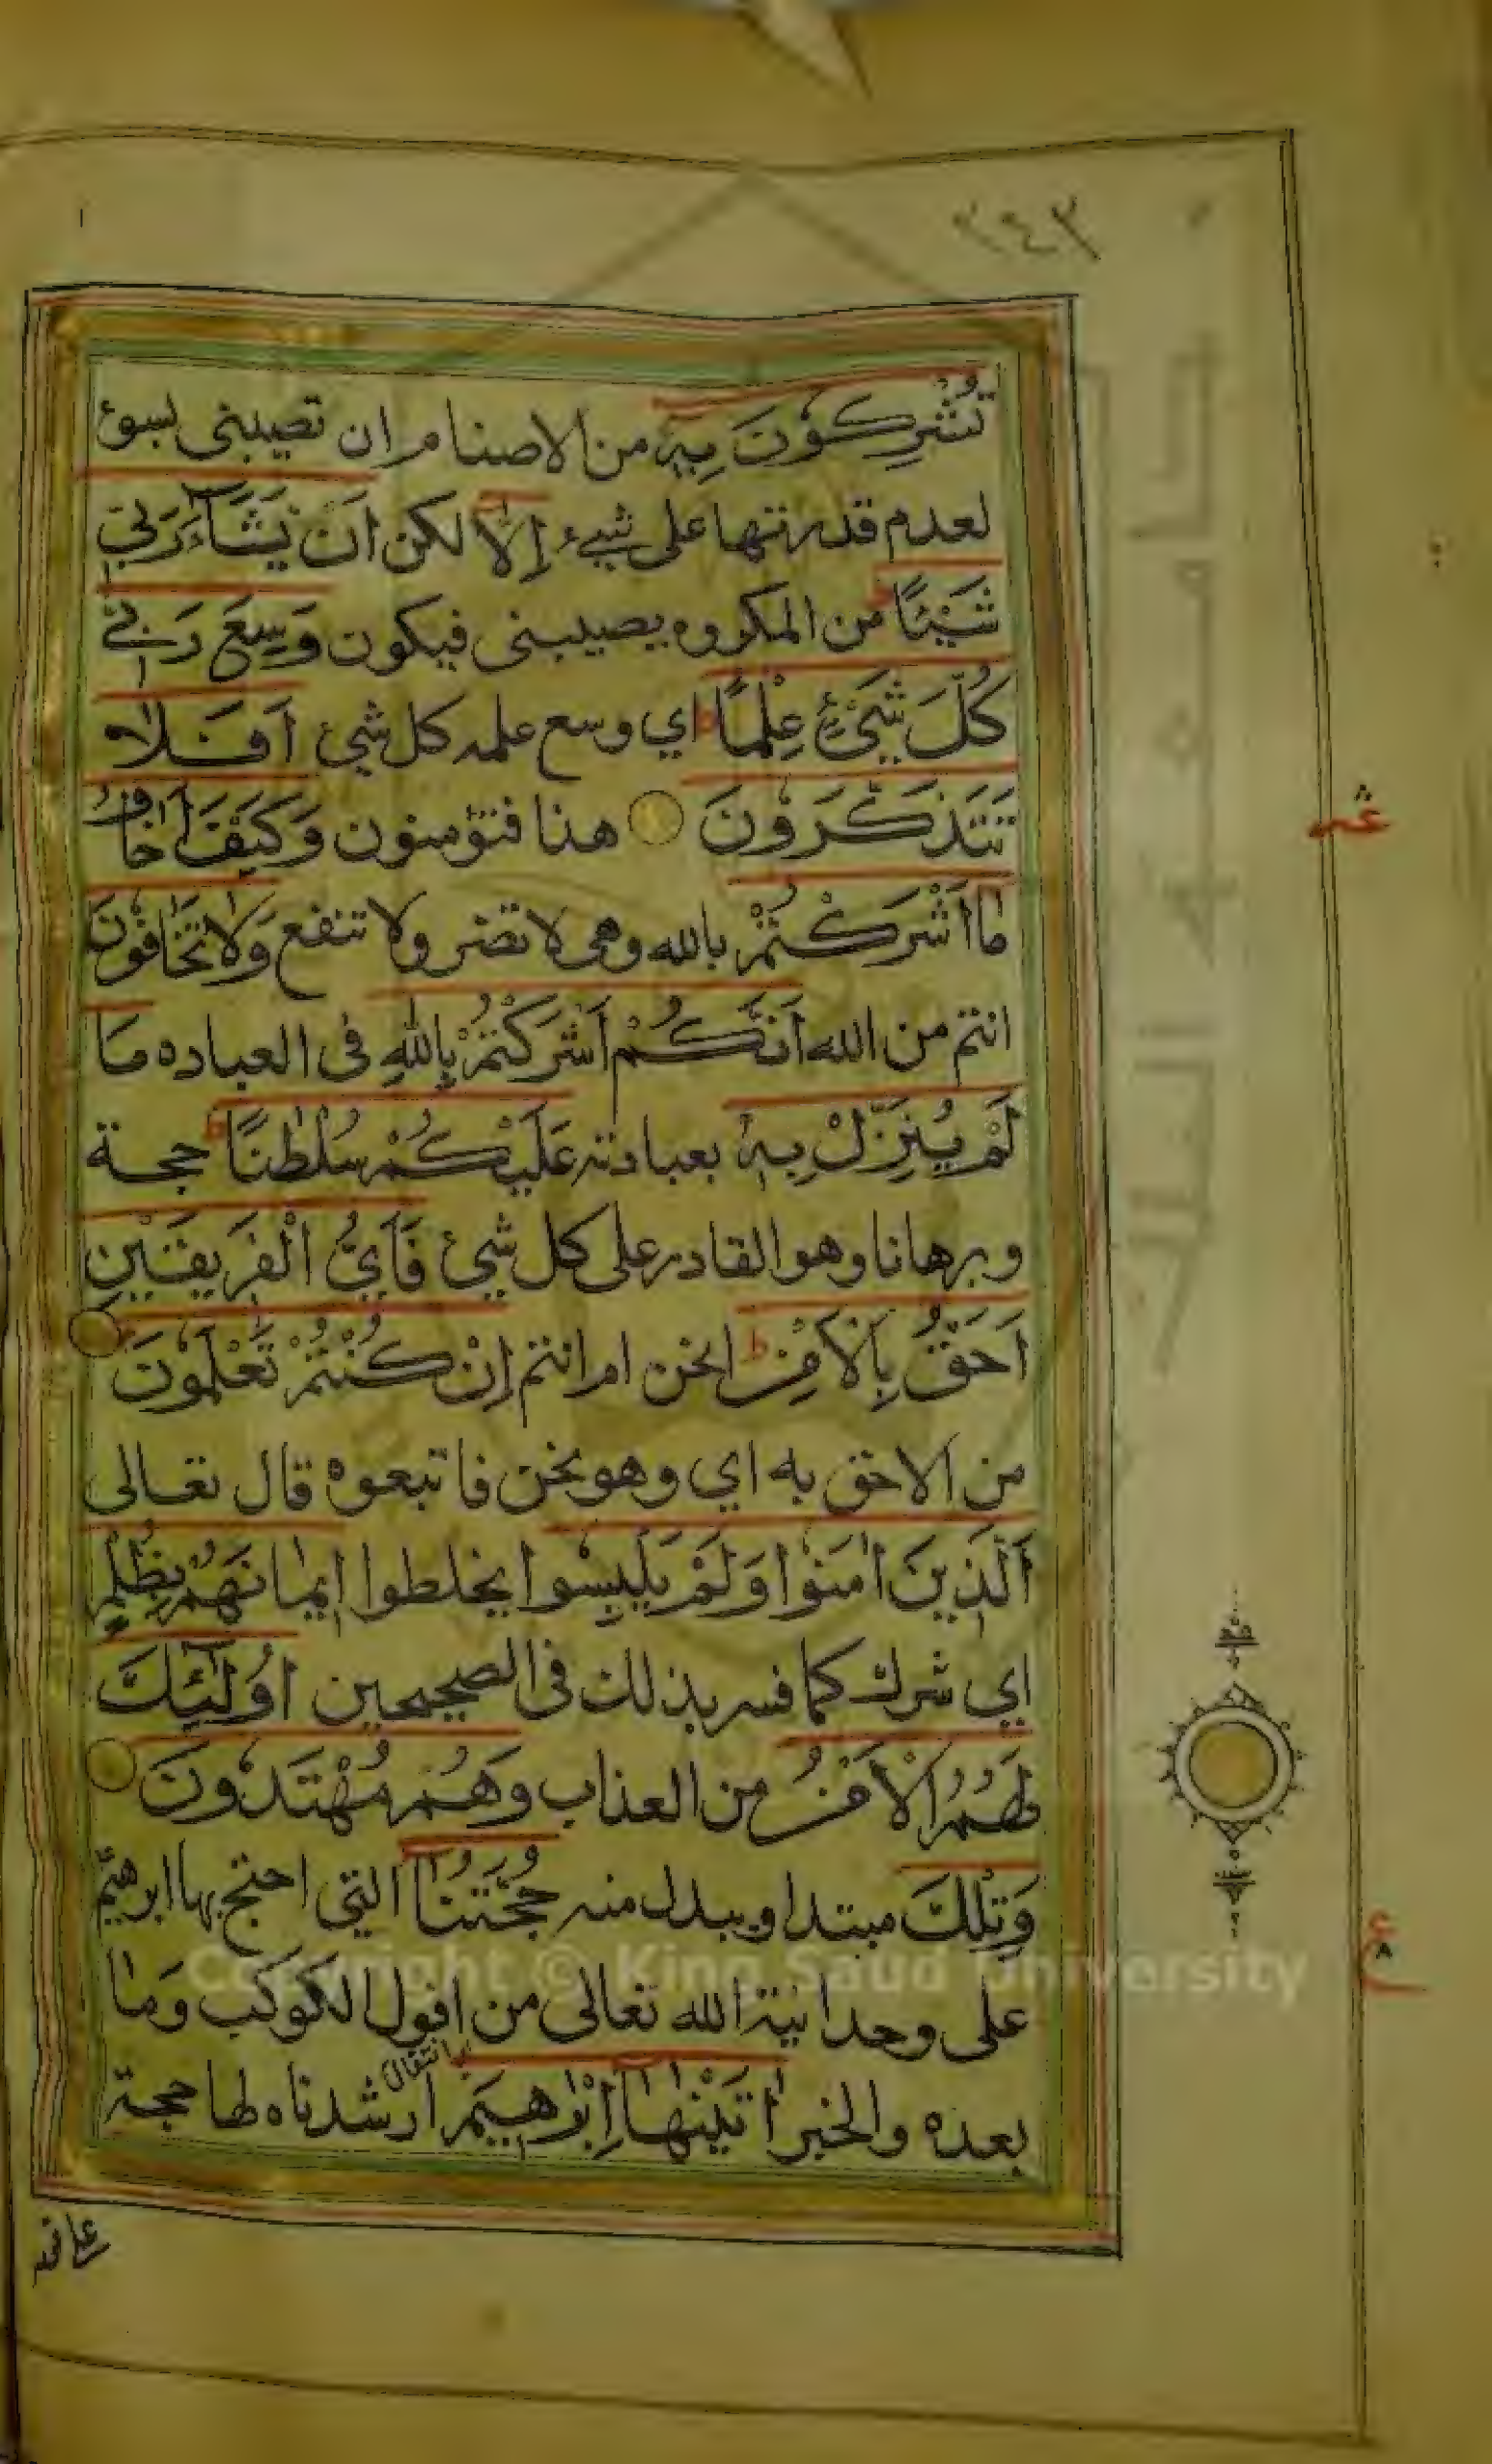 ٢٤٣
تُشْرِكُوْنَ بِهٖ من الاصنام ان تصيبنى بسوء
لعدم قدرتها على شيء اِلَّا لكن اَنْ يَّشَآءَ رَبِّيْ
شَيْئًا من المكروه يصيبنى فيكون وَسِعَ رَبِّيْ
كُلَّ شَيْئٍ عِلْمًا ط اي وسع علمه كل شئ اَفَلَا
تَتَذَكَّرُوْنَ هذا فتؤمنون وَكَيْفَ اَخَافُ
مَا اَشْرَكْتُمْ بالله وهى لا تضر ولا تنفع وَلَا تَخَافُوْنَ
انتم من الله اَنَّكُمْ اَشْرَكْتُمْ بِاللهِ فى العباده مَا
لَمْ يُنَزِّلْ بِهٖ بعبادته عَلَيْكُمْ سُلْطٰنًا ط حجة
وبرهانا وهو القادر على كل شئ فَاَيُّ الْفَرِيْقَيْنِ
اَحَقُّ بِالْاَمْنِ ط انحن ام انتم اِنْ كُنْتُمْ تَعْلَمُوْنَ
من الاحق به اي وهو نحن فاتبعوه قال تعالى
اَلَّذِيْنَ اٰمَنُوْا وَلَمْ يَلْبِسُوا يخلطوا اِيْمَانَهُمْ بِظُلْمٍ
اي شرك كما فسر بذلك فى الصحيحين اُولٰٓئِكَ
لَهُمُ الْاَمْنُ من العذاب وَهُمْ مُهْتَدُوْنَ
وَتِلْكَ مبتدا ويبدل منه حُجَّتُنَا التي احتج بها ابرهيم
على وحدانية الله تعالى من افول الكوكب وَمَا
بعده والخبر اٰتَيْنٰهَا اِبْرٰهِيْمَ ارشدناه لها حجة
ع
٨
Copyright © King Saud University